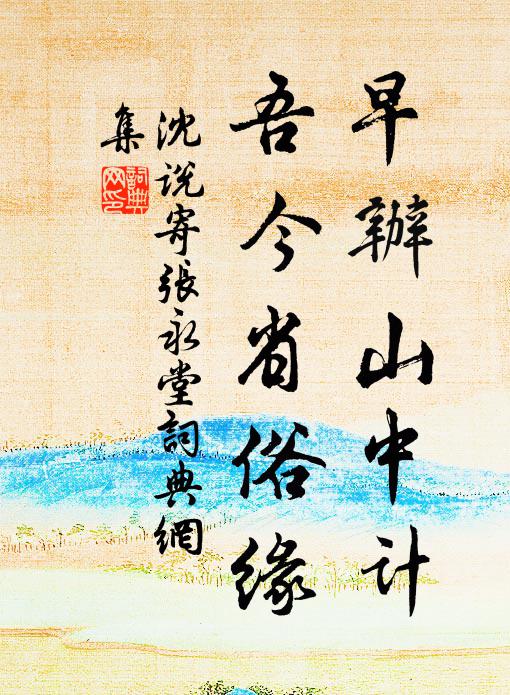 早辦山中計
吾今省俗緣
沈說寄張永堂詞典網
集
詞典網印